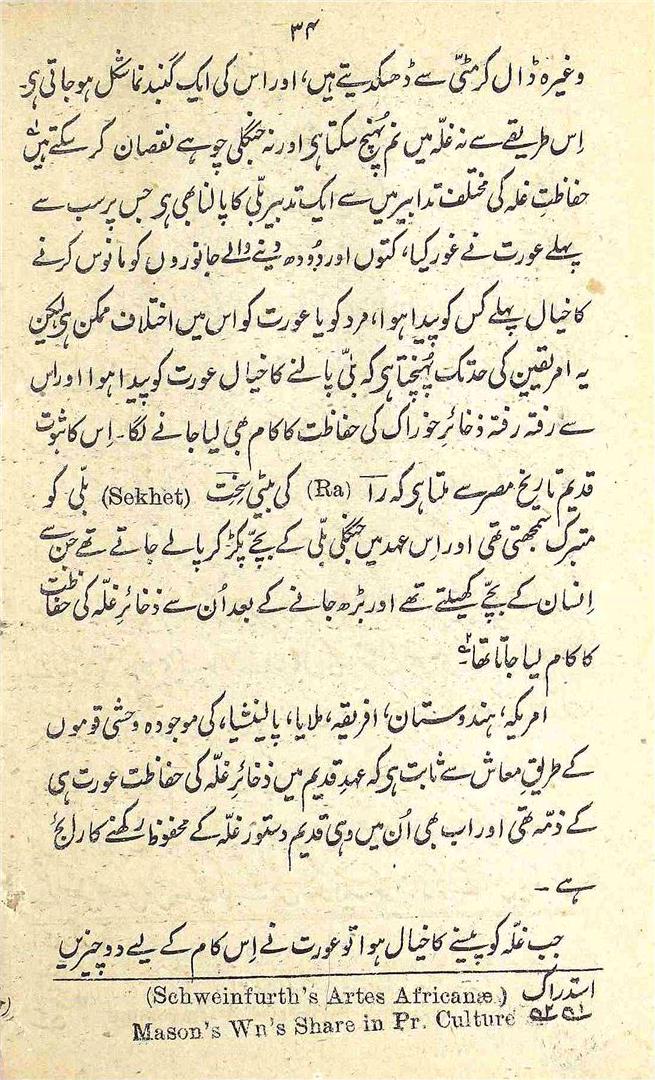 ۳۴
وغیرہ ڈال کر مٹی سے ڈھکدیتے ہیں، اور اس کی ایک گنبد نما شکل ہو جاتی ہی۔
اِس طریقے سے نہ غلّہ میں نم پُہنچ سکتا ہی اور نہ جنگلی چوہے نقصان کر سکتے ہیں ۱؎
حفاظتِ غلہ کی مختلف تدابیر میں سے ایک تدبیر بلّی کا پالنا بھی ہی جس پر سب سے
پہلے عورت نے غور کیا، کتوں اور دُودھ دینے والے جانوروں کو مانوس کرنے
کا خیال پہلے کس کو پیدا ہوا، مرد کو یا عورت کو اس میں اختلاف ممکن ہی لیکن
یہ امر یقین کی حد تک پُہنچتا ہی کہ بلّی پالنے کا خیال عورت کو پیدا ہوا اور اس
سے رفتہ رفتہ ذخائرِ خوراک کی حفاظت کا کام بھی لیا جانے لگا۔ اِس کا ثبوت
قدیم تاریخ مصر سے ملتا ہی کہ را (Ra) کی بیٹی سِخت (Sekhet) بلّی کو
متبرک سمجھتی تھی اور اِس عہد میں جنگلی بلّی کے بچّے پکڑ کر پالے جاتے تھے جن سے
اِنسان کے بچّے کھیلتے تھے اور بڑھ جانے کے بعد اُن سے ذخائرِ غلّہ کی حفاظت
کا کام لیا جاتا تھا۔ ۲؎
امریکہ، ہندوستان، افریقہ، ملایا، پالینشیا، کی موجودہ وحشی قوموں
کے طریقِ معاش سے ثابت ہی کہ عہدِ قدیم میں ذخائرِ غلّہ کی حفاظت عورت ہی
کے ذمّہ تھی اور اب بھی اُن میں وہی قدیم دستور غلّہ کے محفوظ رکھنے کا رائج
ہے۔
جب غلّہ کو پیسنے کا خیال ہوا تو عورت نے اِس کام کے لیے دو چیزیں
استدراک (Schweinfurth's Artes Africanæ)
۱؎ ۲؎ Mason's Wn's Share in Pr. Culture